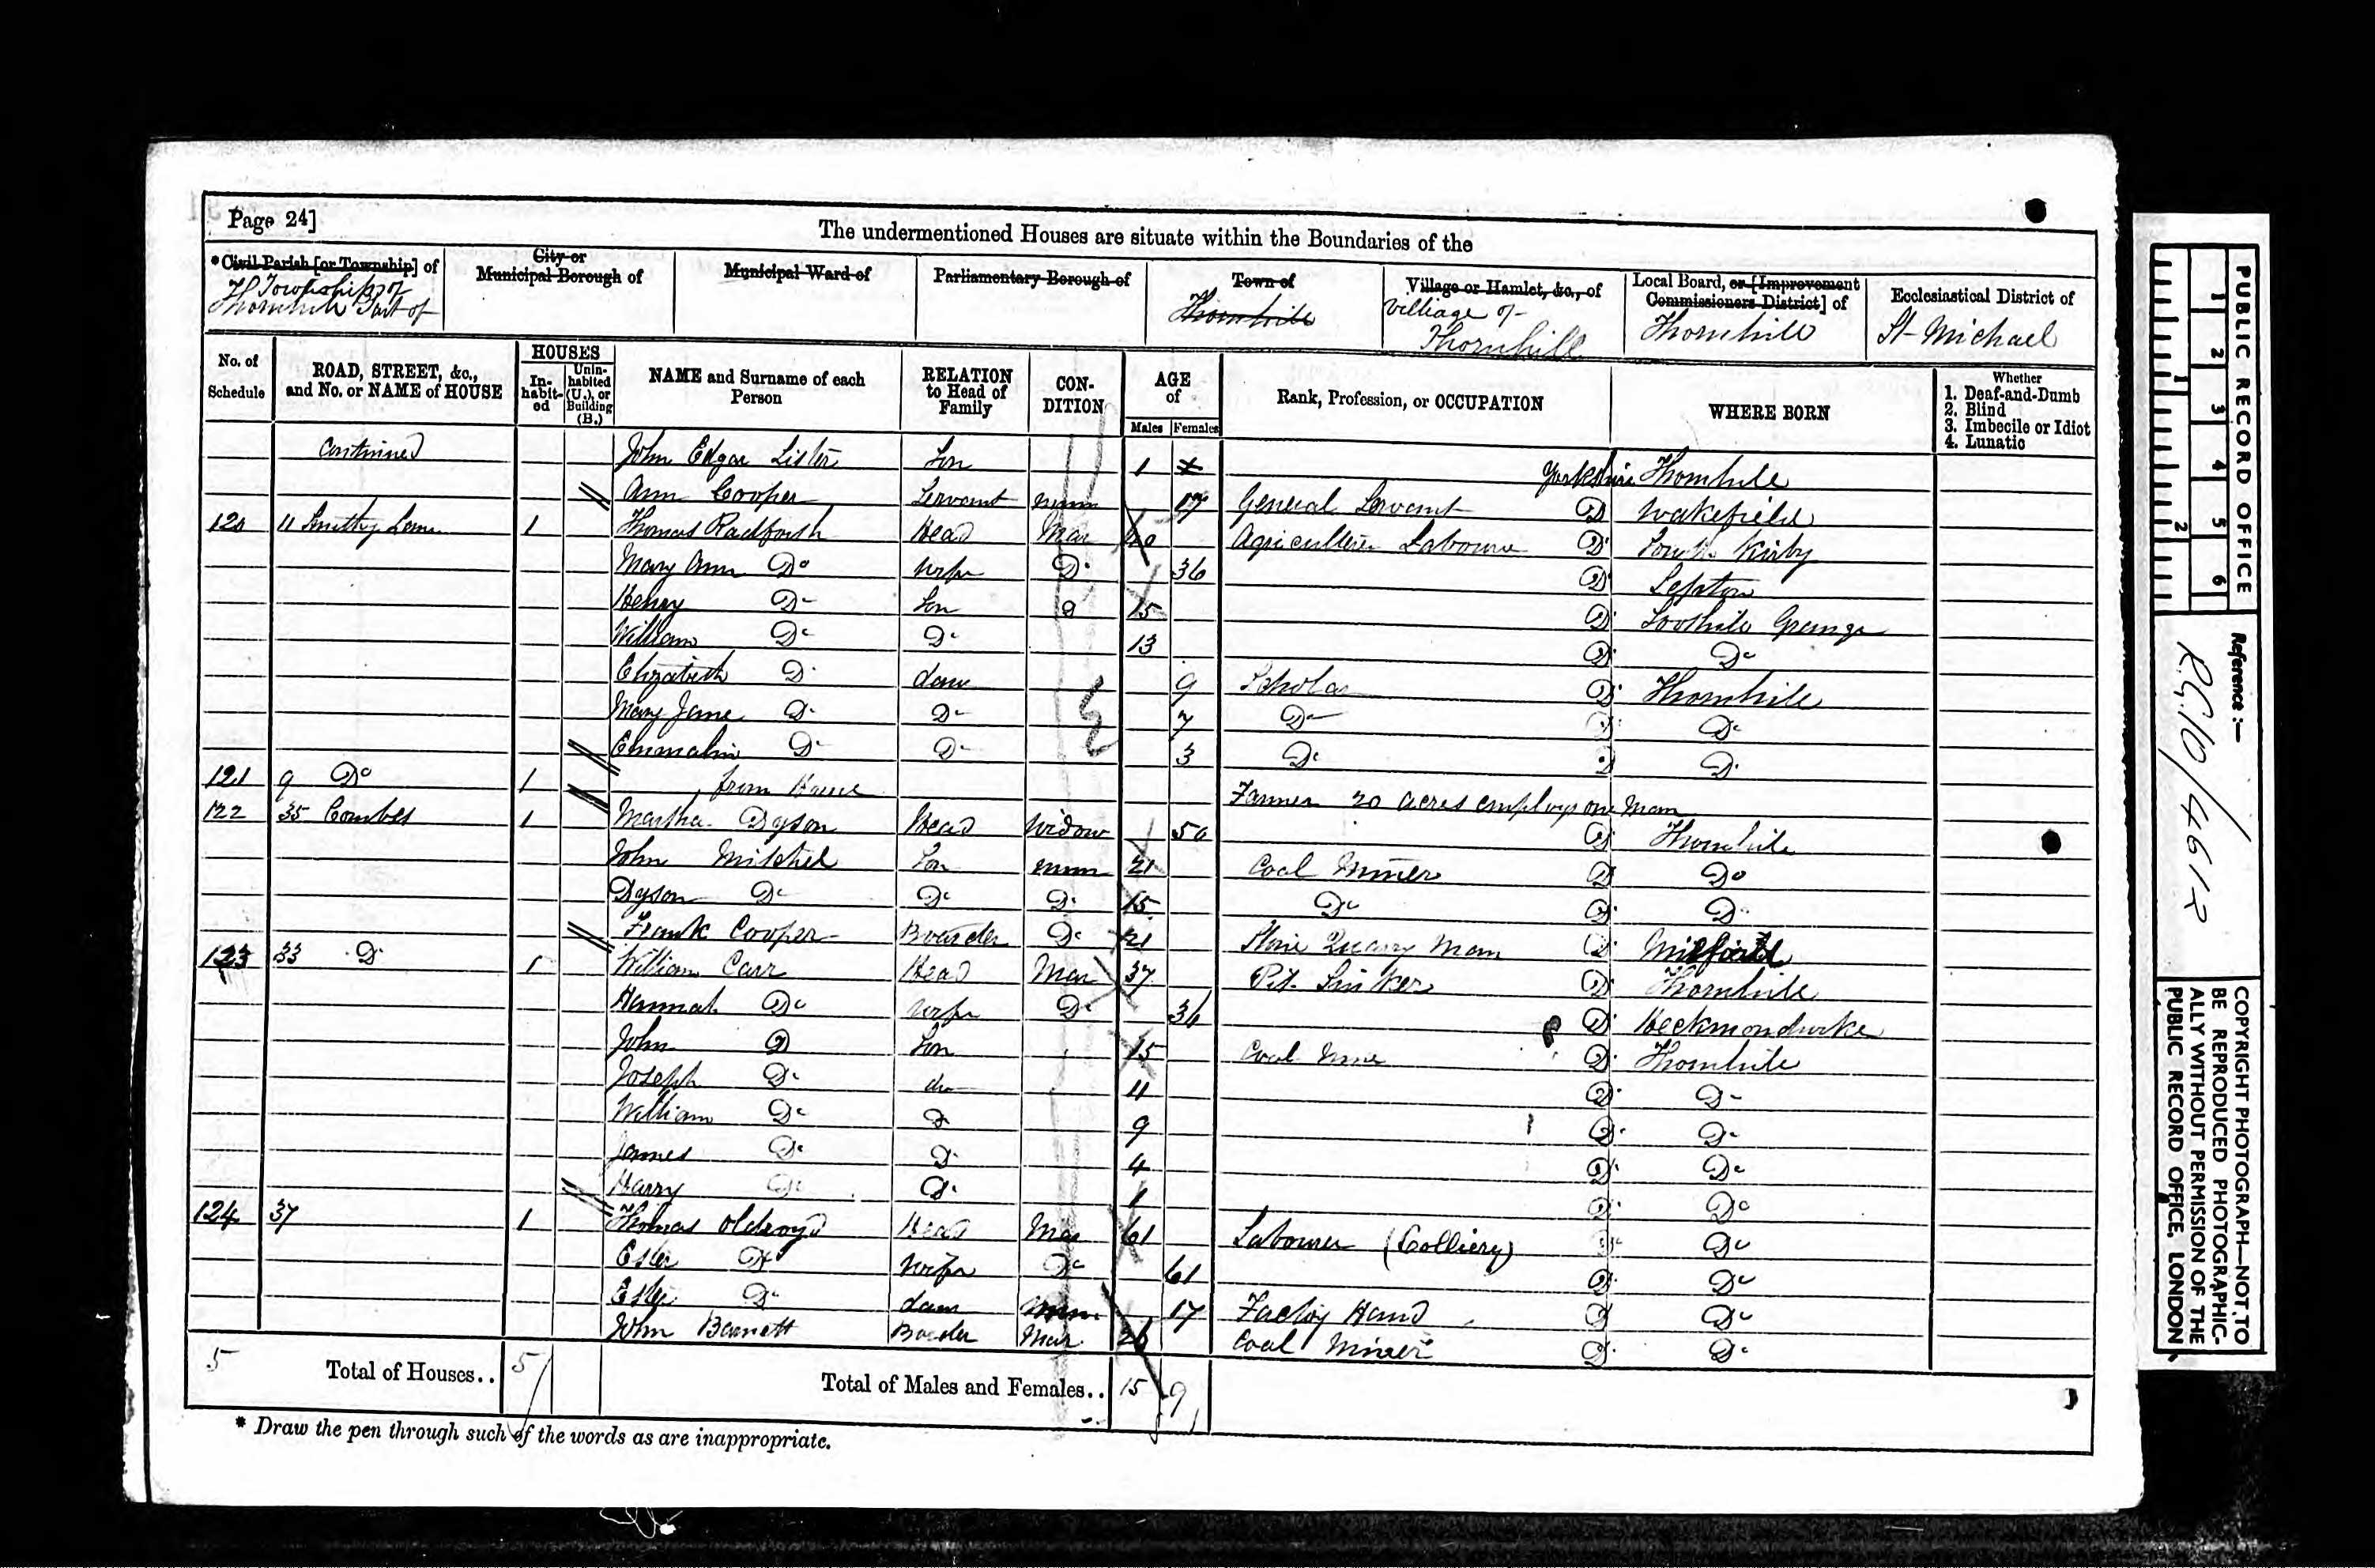 Page 24]
The undermentioned Houses are situate within the Boundaries of the
* Civil Parish [or Township] of
Township of
Thornhill Part of
City or
Municipal Borough of
Municipal Ward of
Parliamentary Borough of
Town of
Thornhill
Village or Hamlet, &c., of
Villiage of
Thornhill
Local Board, or [Improvement
Commissioners District] of
Thornhill
Ecclesiastical District of
St Michael
No. of Schedule
ROAD, STREET, &c., and No. or NAME of HOUSE
HOUSES
In-habit-ed
Unin-habited (U.), or Building (B.)
NAME and Surname of each Person
RELATION to Head of Family
CON-DITION
AGE of
Males Females
Rank, Profession, or OCCUPATION
WHERE BORN
Whether
1. Deaf-and-Dumb
2. Blind
3. Imbecile or Idiot
4. Lunatic
Continued John Edgar Lister Son 1 Yorkshire Thornhill
Ann Cooper Servant 17 General Servant Do Wakefield
120 11 Smithy Lane 1 Thomas Radforth Head Mar 40 Do South Kirby
Mary Ann Do Wife Do 36 Do Lepton
Henry Do Son 15 Do Grange
William Do Do 13 Do Do
Elizabeth Do 9 Scholar Do Thornhill
Mary Jane Do Do 7 Do Do Do
Do Do 3 Do Do Do
121 9 Do 1 from Home
122 35 Combs 1 Martha Dyson Head Widow 50 Farmer 20 acres employs one Man Do Thornhill
John Mitchel Son 21 Coal Miner Do Do
Dyson Do Do Do 15 Do Do Do
Frank Cooper Boarder Do 21 Stone Quarry Man Do
123 33 Do 1 William Carr Head Mar 37 Pit Sinker Do Thornhill
Hannah Do Wife Do 36 Do Heckmondwike
John Do Son 15 Coal Do Thornhill
Joseph Do do 11 Do Do
William Do Do 9 Do Do
James Do Do 4 Do Do
Harry Do Do 1 Do Do
124 37 1 Thomas Oldroyd Head Mar 61 Labourer (Colliery) Do Do
Do Wife Do 61 Do Do
Do 17 Factory Hand Do Do
John Barnett Boarder Mar 26 Coal Miner Do Do
5 Total of Houses.. 5 Total of Males and Females.. 15 9
* Draw the pen through such of the words as are inappropriate.
PUBLIC RECORD OFFICE
1 2 3 4 5 6
1 2
Reference :-
R.G.10/4612
COPYRIGHT PHOTOGRAPH—NOT TO
BE REPRODUCED PHOTOGRAPHIC-
ALLY WITHOUT PERMISSION OF THE
PUBLIC RECORD OFFICE, LONDON